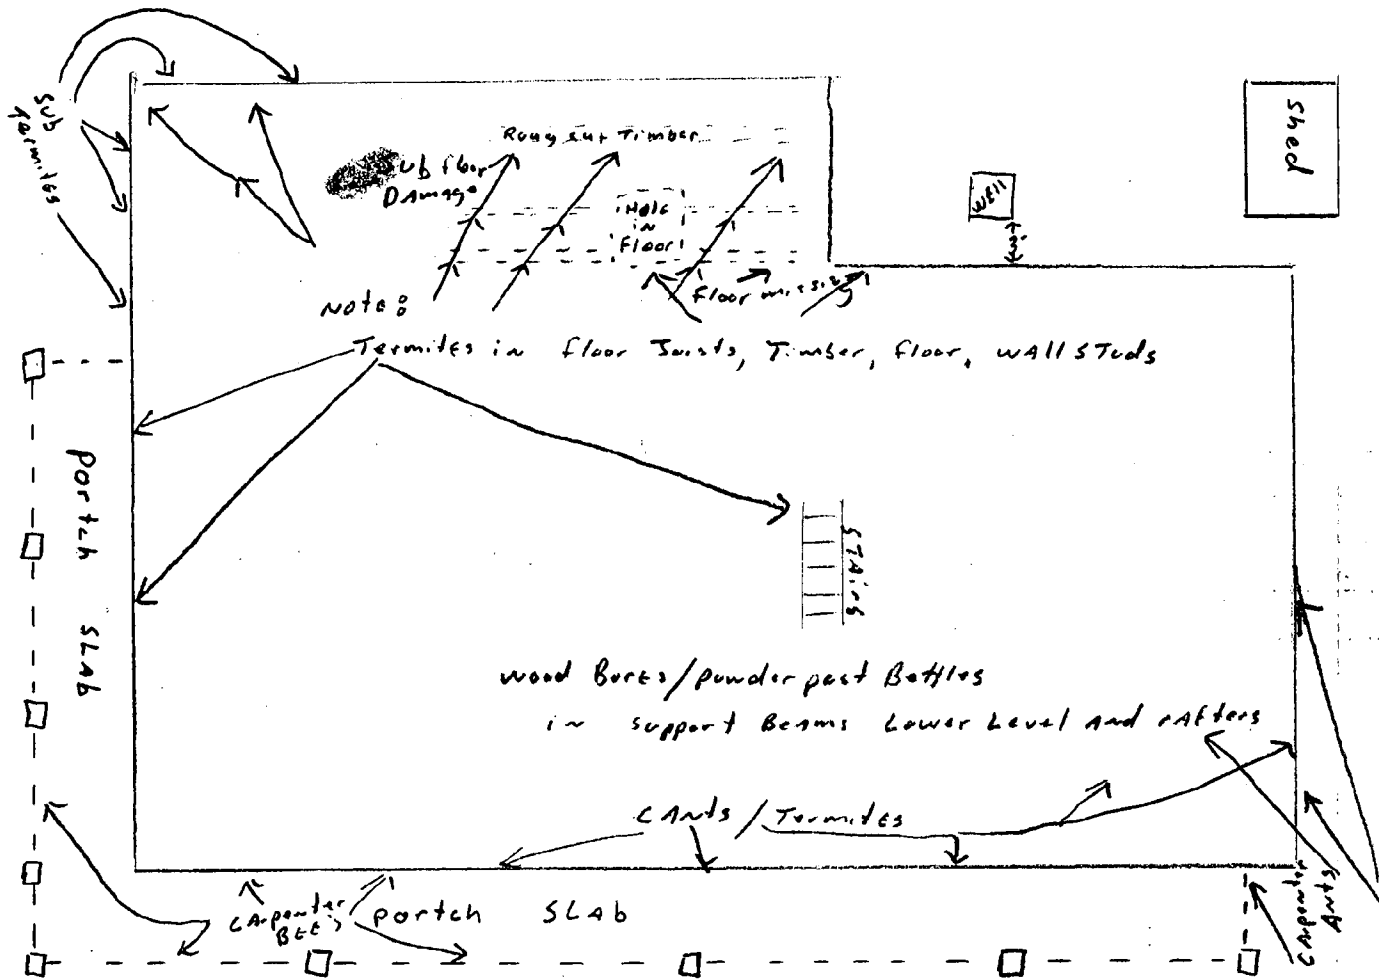 Sub
termites
Rough cut Timber
Sub floor
Damage
Hole
in
Floor
Floor missing
Well
Shed
Note:
Termites in floor Joists, Timber, floor, WALL STuds
portch SLAb
STAirs
wood Bores/powder past Bettles
in support Beams Lower Level And rAfters
CAnts/Termites
CArpenter
BEES
portch SLAb
CArpenter
ANTS